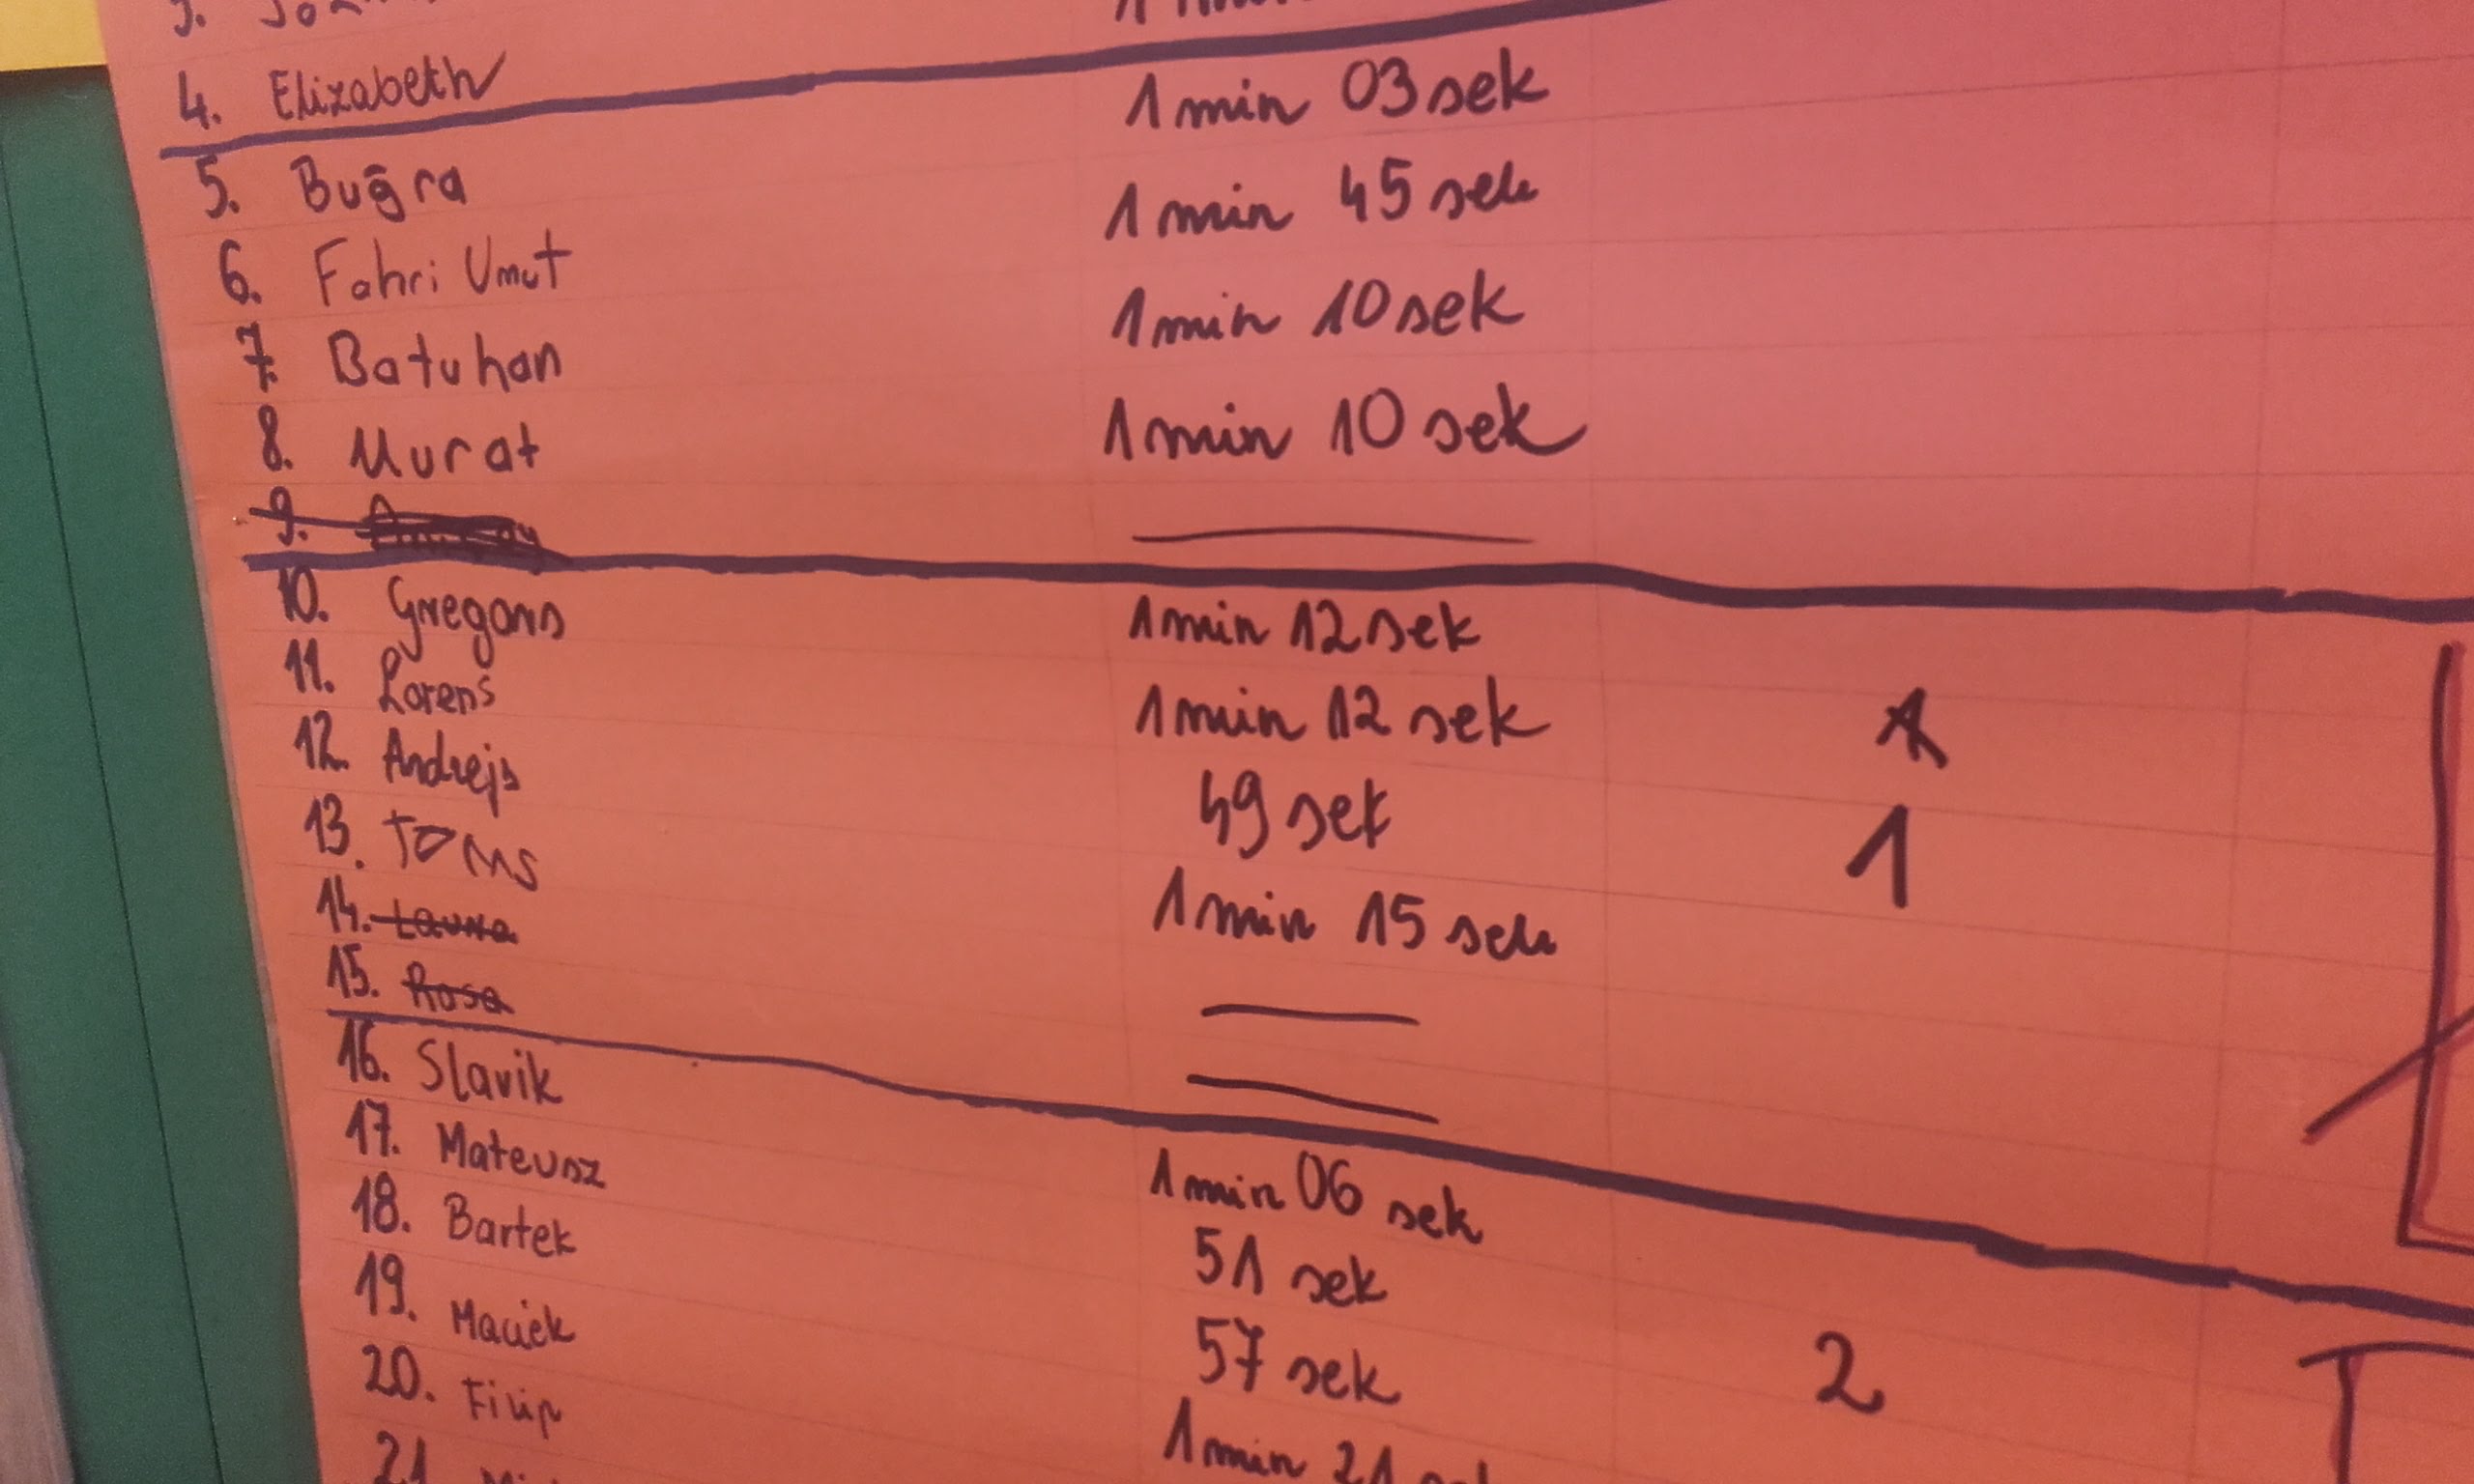 4. Elizabeth
5. Buğra 1 min 03 sek
6. Fahri Umut 1 min 45 sek
7. Batuhan 1 min 10 sek
8. Murat 1 min 10 sek
9.
10. Gregors 1 min 12 sek
11. Lorens 1 min 12 sek
12. Andrejs 49 sek 1
13. TOMS 1 min 15 sek
14. Laura
15. Rosa
16. Slavik 1 min 06 sek
17. Mateusz 51 sek 2
18. Bartek 57 sek
19. Maciek 1 min 21
20. Filip
21